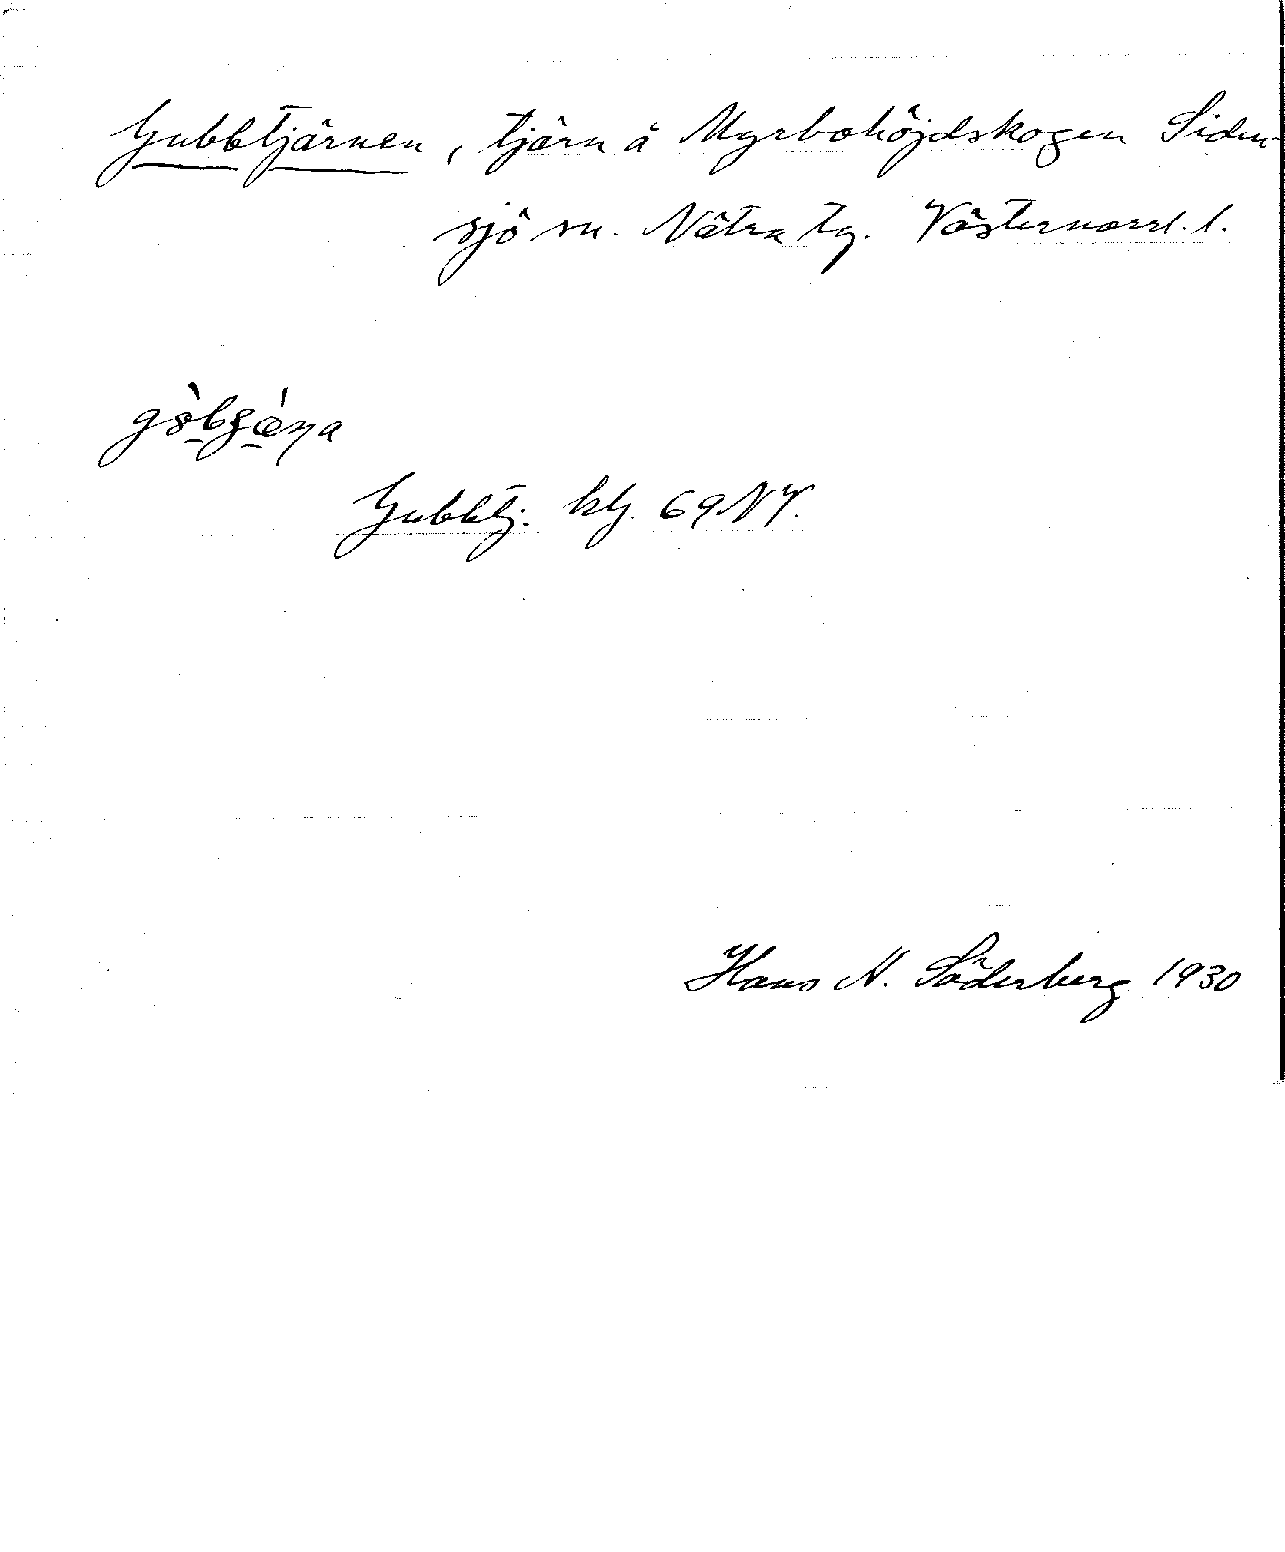 Gubbtjärnen, tjärn å Myrbohöjdskogen Siden-
sjö sn. Nätra tg. Västernorrl. l.
Gubbtj. ktj. 69 NV.
Hans N. Söderberg 1930